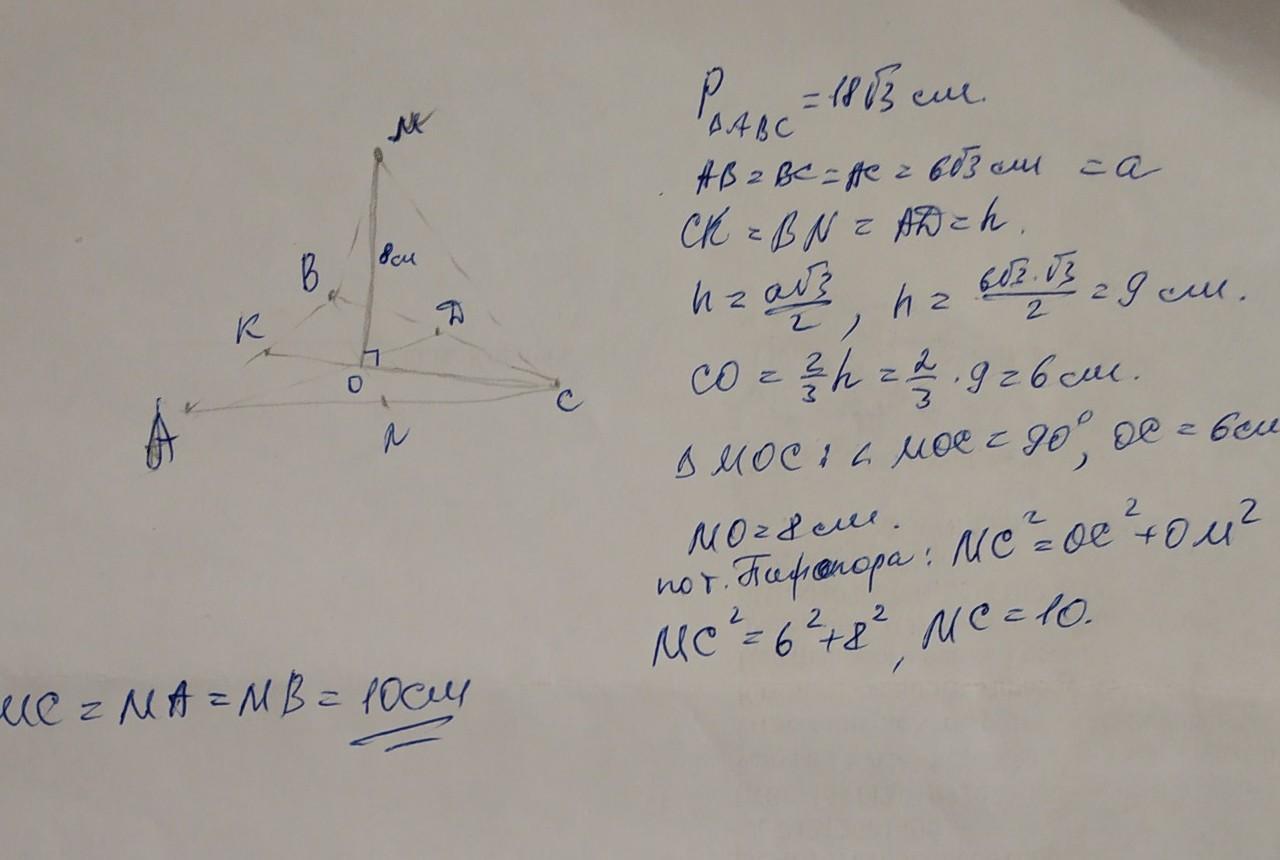 M
8см
B
K
D
O
C
A
N
P ΔABC = 18√3 см.
AB = BC = AC = 6√3 см = a
CK = BN = AD = h.
h = a√3/2, h = 6√3·√3/2 = 9 см.
CO = 2/3 h = 2/3 · 9 = 6 см.
Δ MOC: ∠ MOC = 90°, OC = 6см
MO = 8 см.
по т. Пифагора: MC² = OC² + OM²
MC² = 6² + 8², MC = 10.
MC = MA = MB = 10см